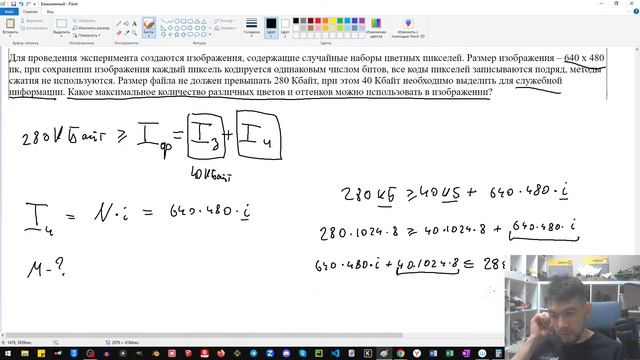 Безымянный - Paint
Файл
Главная
Вид
Вставить
Выделить
Кисти
Толщина
Цвет 1
Цвет 2
Изменение цветов
Изменить с помощью Paint 3D
Буфер обмена
Изображение
Инструменты
Фигуры
Цвета
Для проведения эксперимента создаются изображения, содержащие случайные наборы цветных пикселей. Размер изображения – 640 x 480
пк, при сохранении изображения каждый пиксель кодируется одинаковым числом битов, все коды пикселей записываются подряд, методы
сжатия не используются. Размер файла не должен превышать 280 Кбайт, при этом 40 Кбайт необходимо выделить для служебной
информации. Какое максимальное количество различных цветов и оттенков можно использовать в изображении?
280 КБайт ≥ I ф = I з + I ч
40 КБайт
280 КБ ≥ 40 КБ + 640·480·i
I ч = N·i = 640·480·i
280·1024·8 ≥ 40·1024·8 + 640·480·i
M - ?
640·480·i + 40·1024·8 ≤ 28
100%